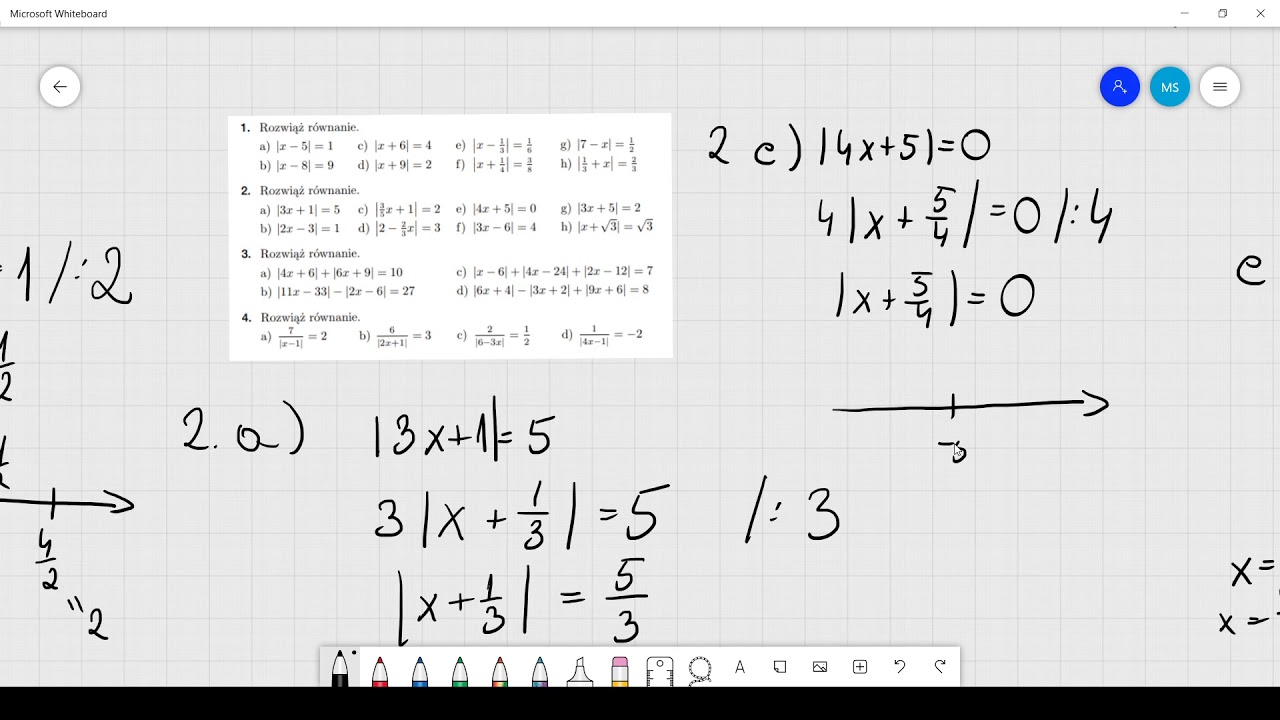 Microsoft Whiteboard
MS
1. Rozwiąż równanie.
a) |x − 5| = 1 c) |x + 6| = 4 e) |x − 1/3| = 1/6 g) |7 − x| = 1/2
b) |x − 8| = 9 d) |x + 9| = 2 f) |x + 1/4| = 3/8 h) |1/3 + x| = 2/3
2. Rozwiąż równanie.
a) |3x + 1| = 5 c) |3/5x + 1| = 2 e) |4x + 5| = 0 g) |3x + 5| = 2
b) |2x − 3| = 1 d) |2 − 2/3x| = 3 f) |3x − 6| = 4 h) |x + √3| = √3
3. Rozwiąż równanie.
a) |4x + 6| + |6x + 9| = 10 c) |x − 6| + |4x − 24| + |2x − 12| = 7
b) |11x − 33| − |2x − 6| = 27 d) |6x + 4| − |3x + 2| + |9x + 6| = 8
4. Rozwiąż równanie.
a) 7/|x−1| = 2 b) 6/|2x+1| = 3 c) 2/|6−3x| = 1/2 d) 1/|4x−1| = −2
= 1 /:2
1/2
4/2
" 2
2. a) |3x+1| = 5
3|x + 1/3| = 5 /: 3
|x + 1/3| = 5/3
2 e) |4x+5| = 0
4|x + 5/4| = 0 /:4
|x + 5/4| = 0
e
x =
x =
A